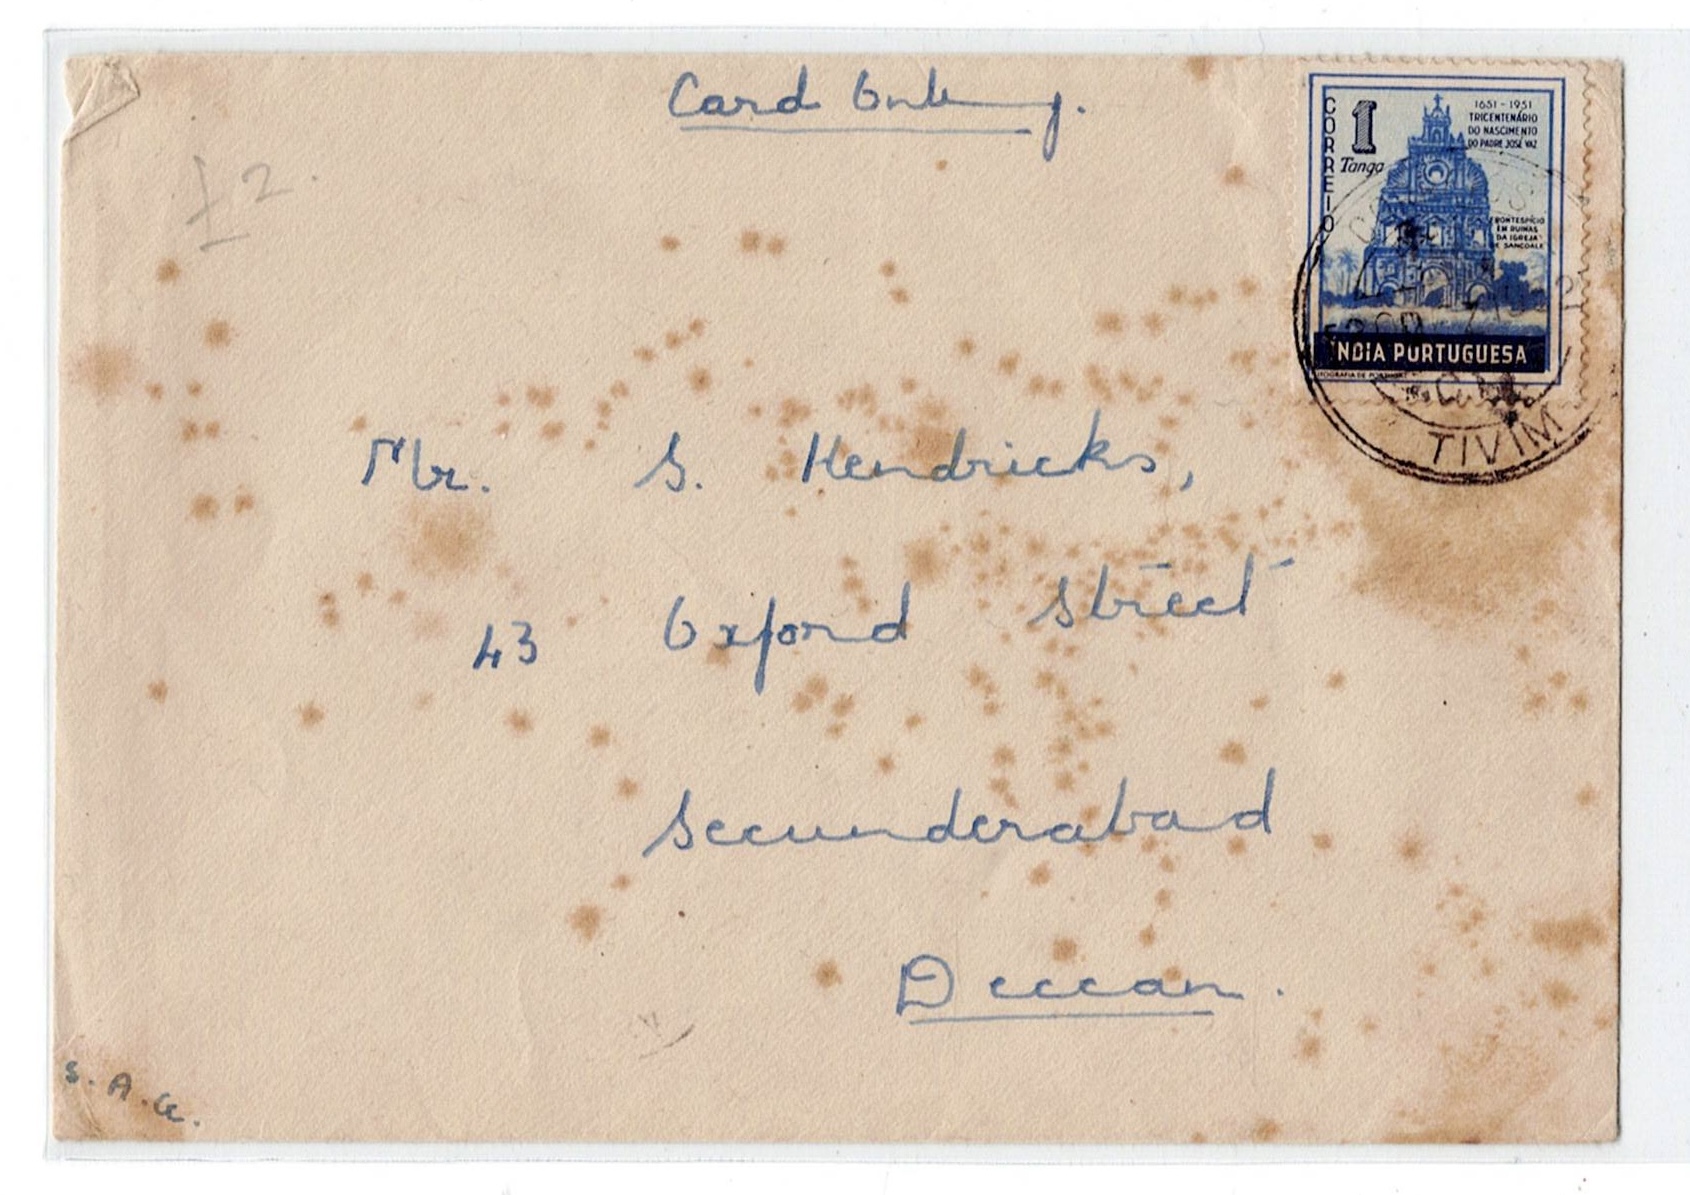 Card Only.
12.
CORREIO
1
Tanga
1651 - 1951
TRICENTENÁRIO
DO NASCIMENTO
DO PADRE JOSÉ VAZ
FRONTESPÍCIO
EM RUINAS
DA IGREJA
DE SANCOALE
ÍNDIA PORTUGUESA
TIVIM
Mr. S. Hendricks,
43 Oxford Street
Secunderabad
Deccan.
S. A. G.